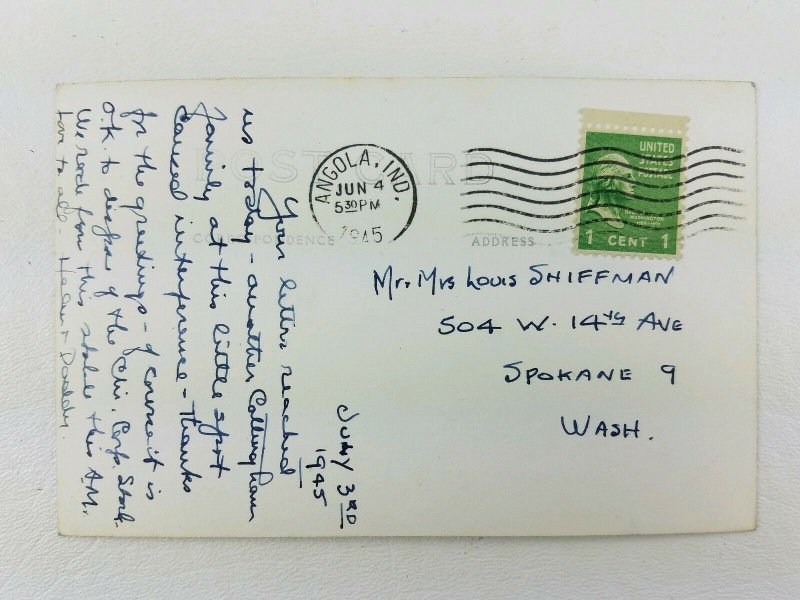 POST CARD
CORRESPONDENCE
ADDRESS
ANGOLA, IND.
JUN 4
5 30 PM
1945
UNITED
STATES
POSTAGE
1 CENT 1
Mr. Mrs Louis SHIFFMAN
504 W. 14TH AVE
SPOKANE 9
WASH.
3RD
1945
Your letters reached
us today - another Callingham
family at this little spot
caused interference - Thanks
for the greetings - of course it is
O.K. to dispose of the Chi. Corp. Stock.
We rode from this stable this A.M.
Love to all, & Daddy.